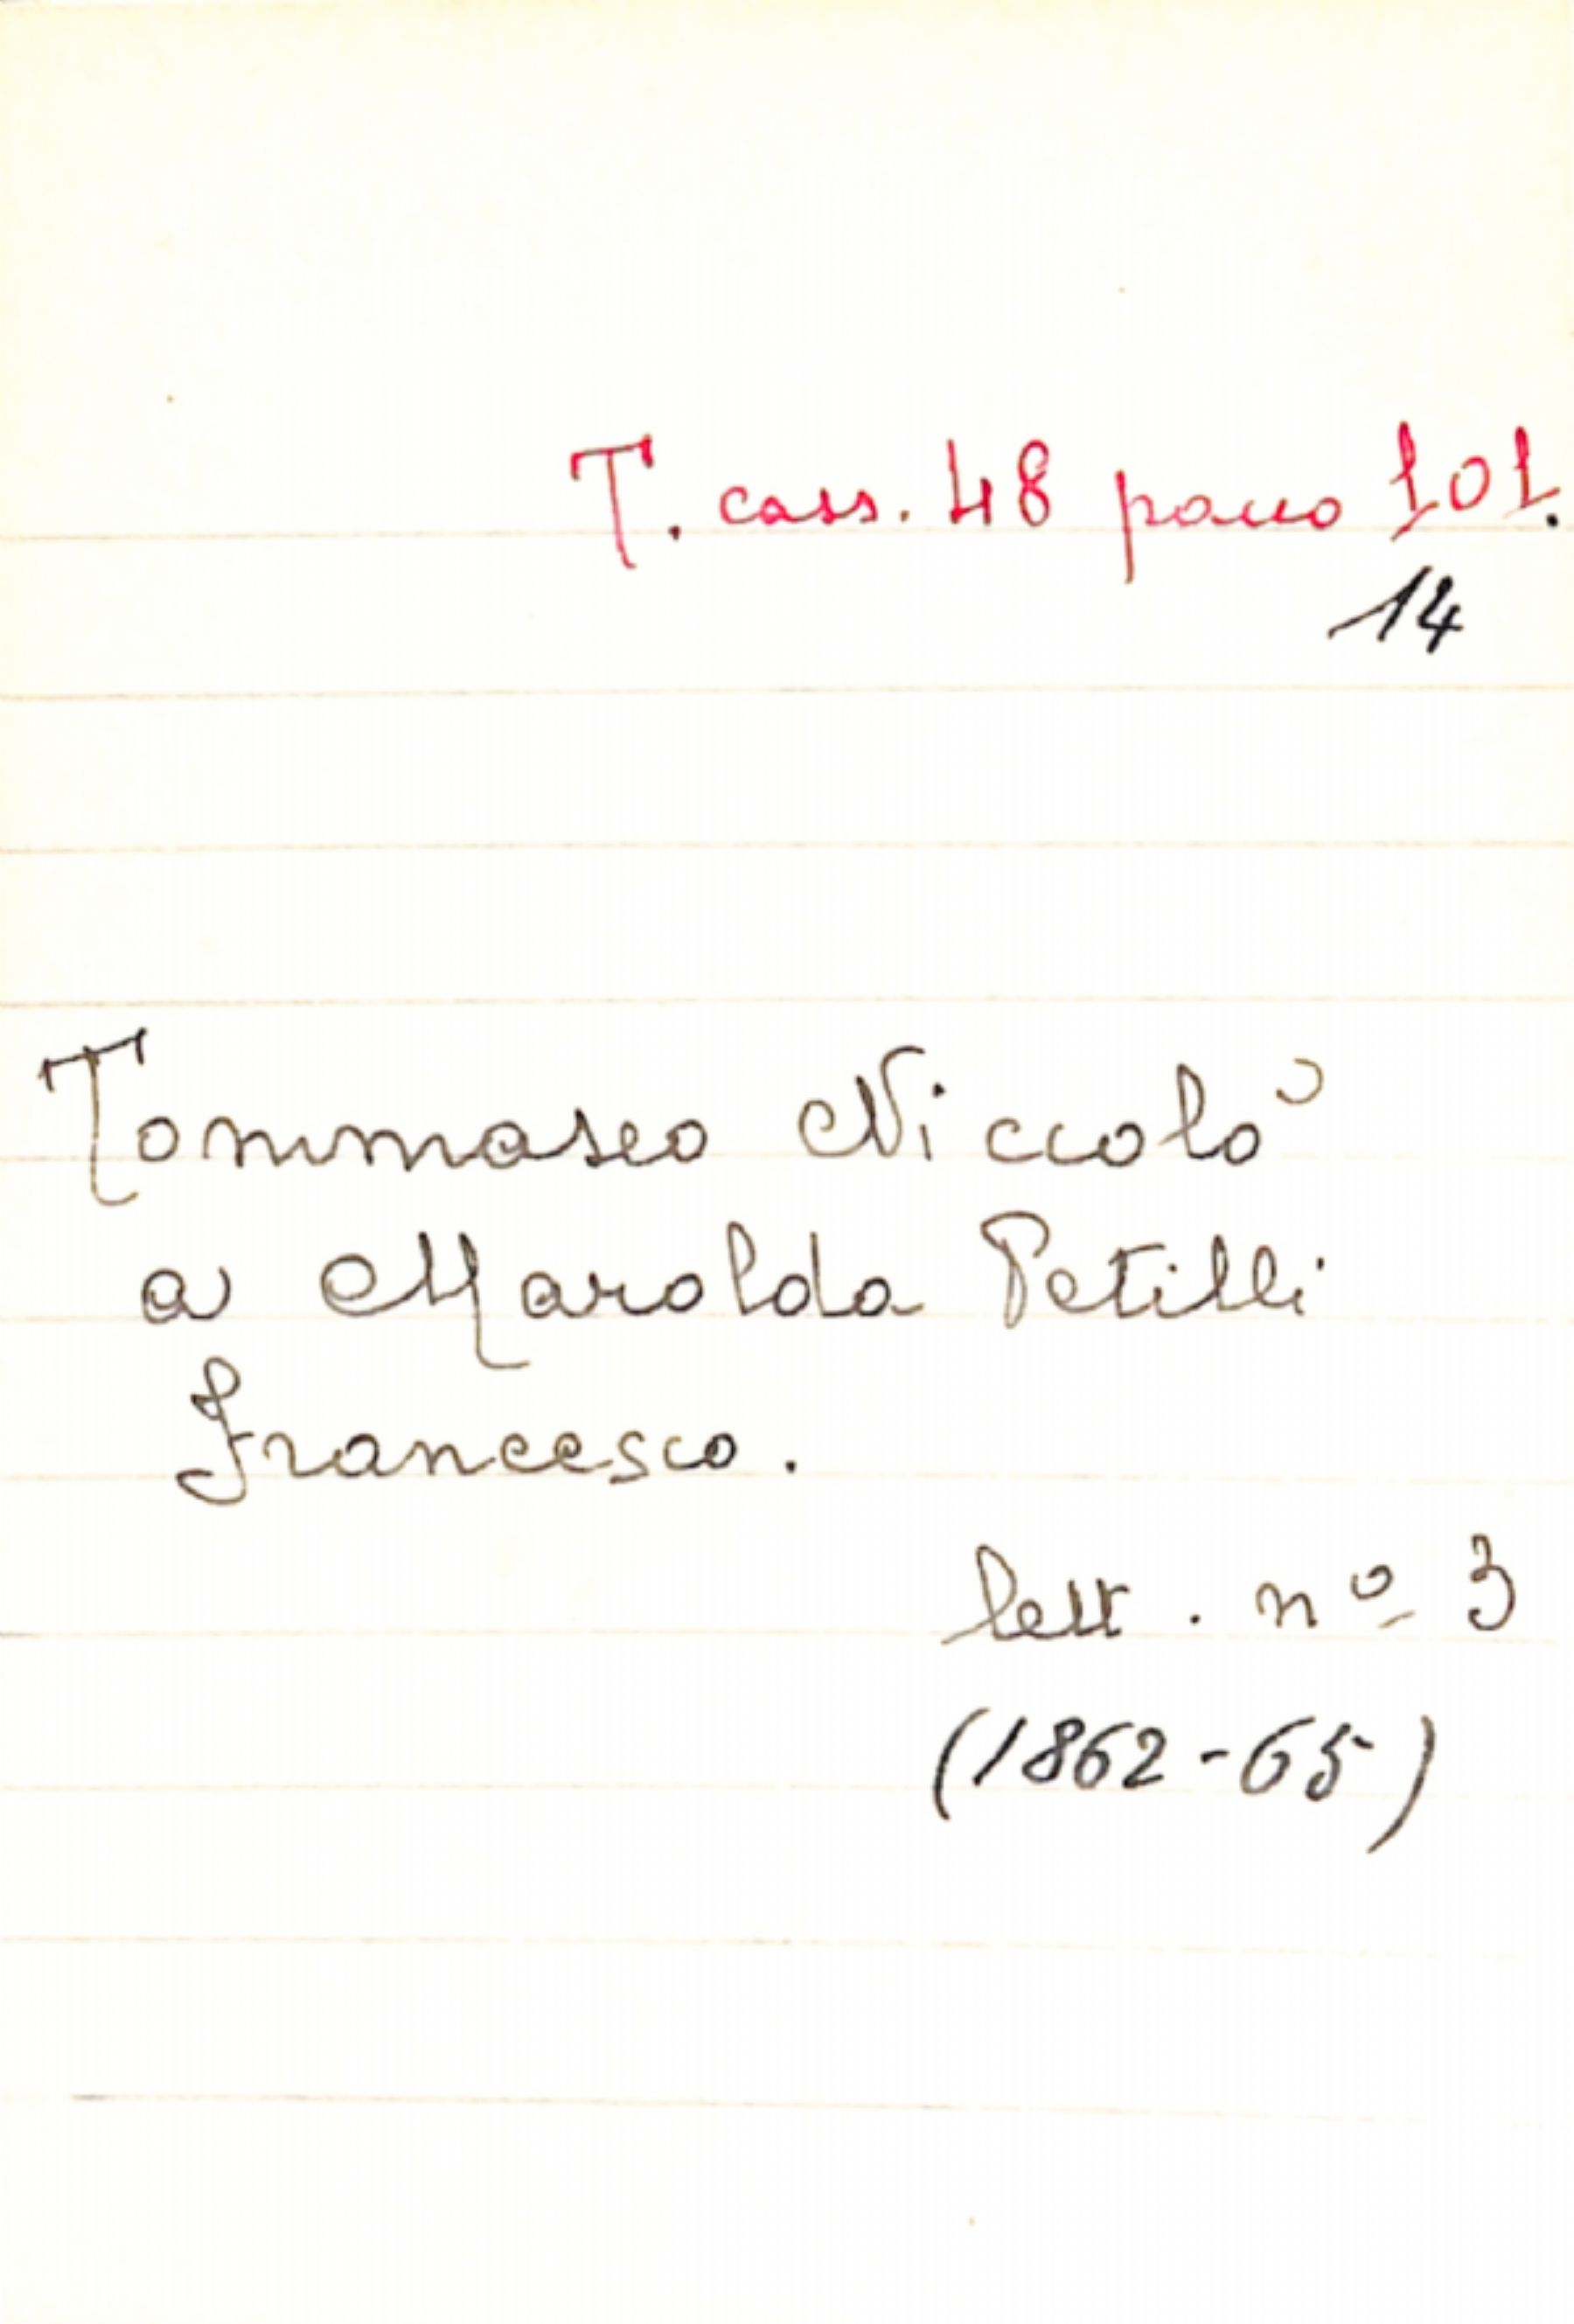 T. cass. 48 pacco 101.
14
Tommaseo Niccolò
a Marolda Petilli
Francesco.
lett. nº 3
(1862-65)